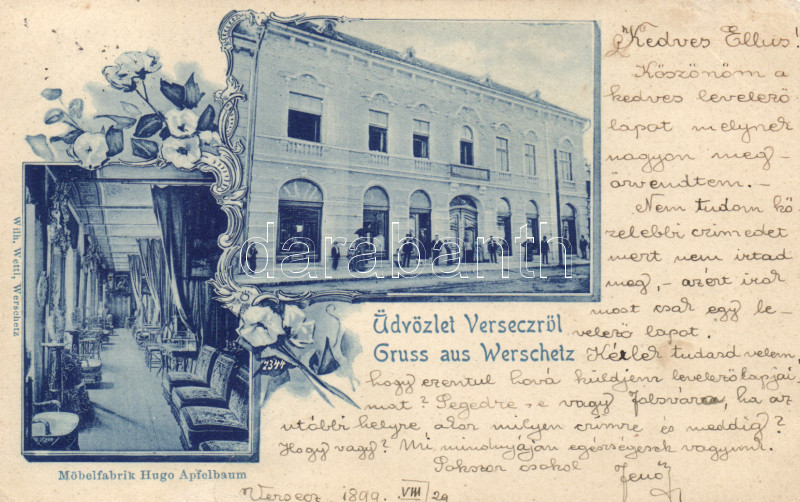 Kedves Ellus!
Köszönöm a
kedves levelező
lapot melynek
nagyon meg-
örvendtem. -
Nem tudom kö
zelebbi czimedet
mert nem irtad
meg, - azért irok
most csak egy le-
velező lapot.
Kérlek tudasd velem,
hogy ezentul hová küldjem levelezőlapjai
mat? Szegedre, -e vagy Jolsvára, ha az
utóbbi helyre akor milyen czimre és meddig?
Hogy vagy? Mi mindnyájan egészségesek vagyunk.
Sokszor csokol
Jenő
Versecz, 1899. VIII/29
Üdvözlet Verseczről
Gruss aus Werschetz
Wilh. Wettl, Werschetz
2344
Möbelfabrik Hugo Apfelbaum
darabanth.com